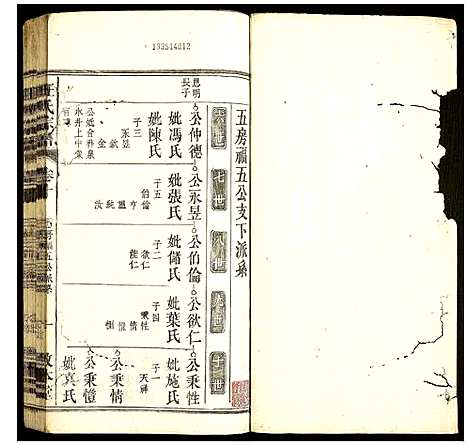 193514012
五房福五公支下派系
六世
七世
八世
九世
十世
思明
長子
公仲德
妣馮氏
妣陳氏
子三
永昱
公妣合葬泉
水井上中棠
公永昱
妣張氏
子五
伯倫
公伯倫
妣儲氏
子二
欲仁
能仁
公欲仁
妣葉氏
子四
秉性
公秉性
妣施氏
子一
天祥
公秉情
公秉愷
妣袁氏
汪氏宗譜
卷十
五房福五公派系
一
敦本堂